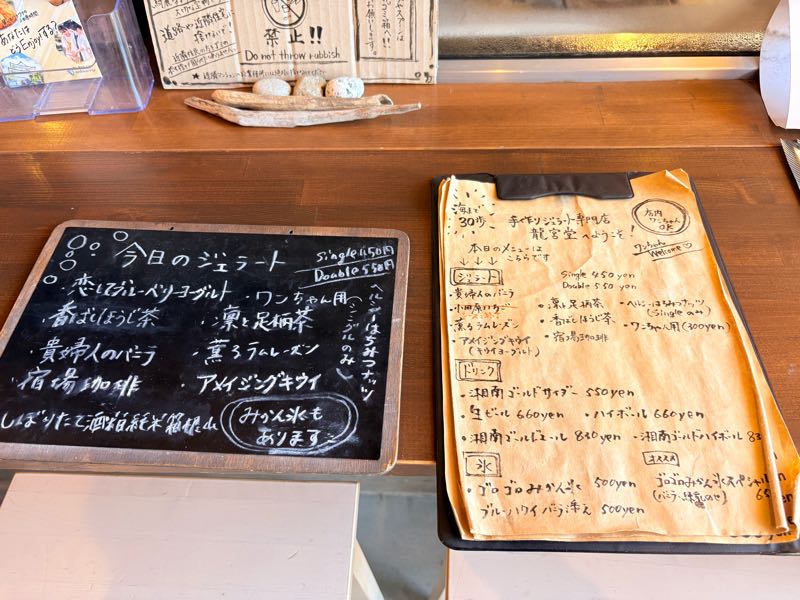 あなたは
どうEnjoyする?
道路や近隣住宅も
捨てないで
禁止!!
Do not throw rubbish
お願いします。
今日のジェラート
Single 450円
Double 550円
・恋してブルーベリーヨーグルト
・ワンちゃん用
・香ばしほうじ茶
・凛と足柄茶
・貴婦人のバニラ
・薫るラムレーズン
・宿場珈琲
・アメイジングキウイ
ヘルシーはちみつナッツ
(シングルのみ)
しぼりたて酒粕純米箱根山
みかん氷も
あります
海まで
30歩
手作りジェラート専門店
龍宮堂へようこそ!
店内
ワンちゃん
OK
ワンちゃん
Welcome♡
本日のメニューは
こちらです
↓ ↓ ↓
ジェラート
Single 450yen
Double 550yen
貴婦人のバニラ
小田原いちご
薫るラムレーズン
・アメイジングキウイ
(キウイヨーグルト)
・凛と足柄茶
・香ばしほうじ茶
・宿場珈琲
・ヘルシーはちみつナッツ
(Singleのみ)
・ワンちゃん用(300yen)
ドリンク
・湘南ゴールドサイダー 550yen
・生ビール 660yen
・ハイボール 660yen
・湘南ゴールドエール 830yen
・湘南ゴールドハイボール 83
氷
・ゴロゴロみかん氷 500yen
ブルーハワイ バニラ添え 500yen
オススメ
ゴロゴロみかん氷スペシャル
(バニラ、練乳のせ)